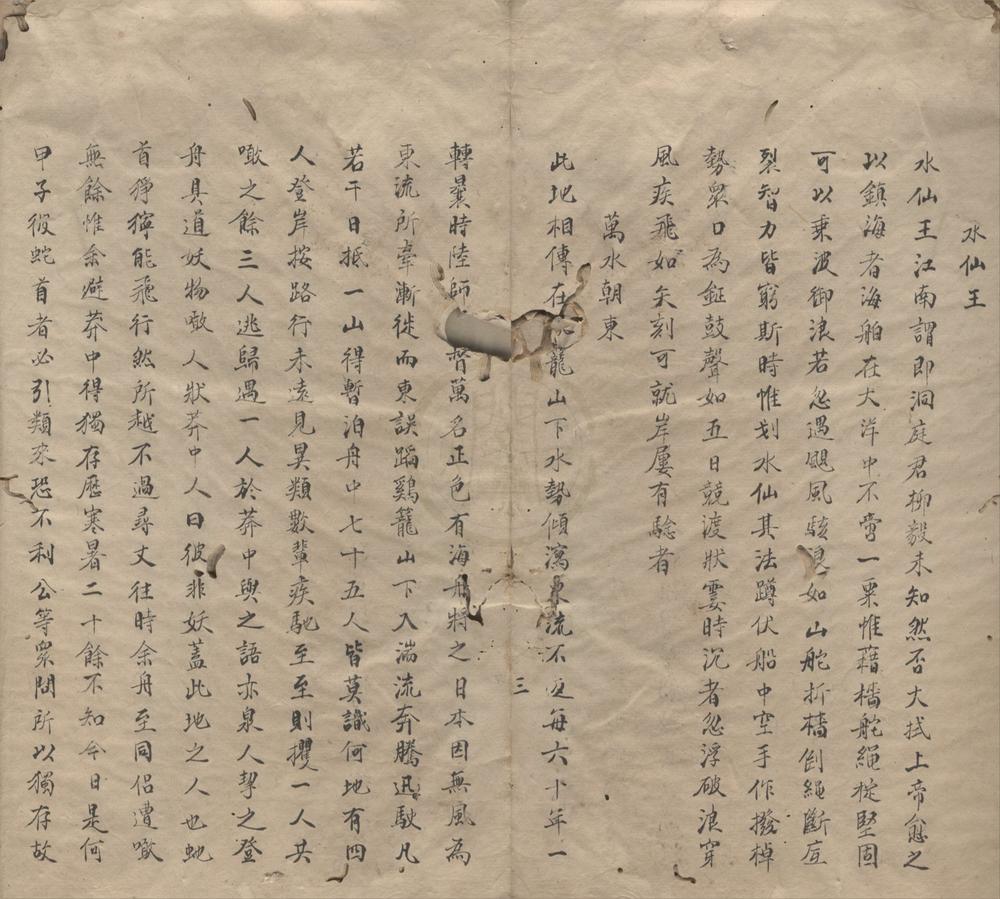 水仙王
水仙王江南謂即洞庭君柳毅未知然否大抵上帝命之
以鎮海者海舶在大洋中不啻一粟惟藉檣舵繩椗堅固
可以乘波御浪若忽遇颶風駭浪如山舵折檣倒繩斷底
裂智力皆窮斯時惟划水仙其法蹲伏船中空手作撥棹
勢眾口為鉦鼓聲如五日競渡狀霎時沉者忽浮破浪穿
風疾飛如矢刻可就岸屢有騐者
萬水朝東
此地相傳在龍山下水勢傾瀉東流不返每六十年一
三
轉曩時陸師督萬名正色有海舟將之日本因無風為
東流所牽漸徙而東誤蹈鷄籠山下入湍流奔騰迅駛凡
若干日抵一山得暫泊舟中七十五人皆莫識何地有四
人登岸按路行未遠見異類數輩疾馳至至則攫一人共
噉之餘三人逃歸遇一人於莽中與之語亦泉人挈之登
舟具道妖物噉人狀莽中人曰彼非妖蓋此地之人也虵
首猙獰能飛行然所越不過尋丈往時余舟至同侶遭噉
無餘惟余避莽中得獨存歷寒暑二十餘不知今日是何
甲子彼蛇首者必引類來恐不利公等眾問所以獨存故